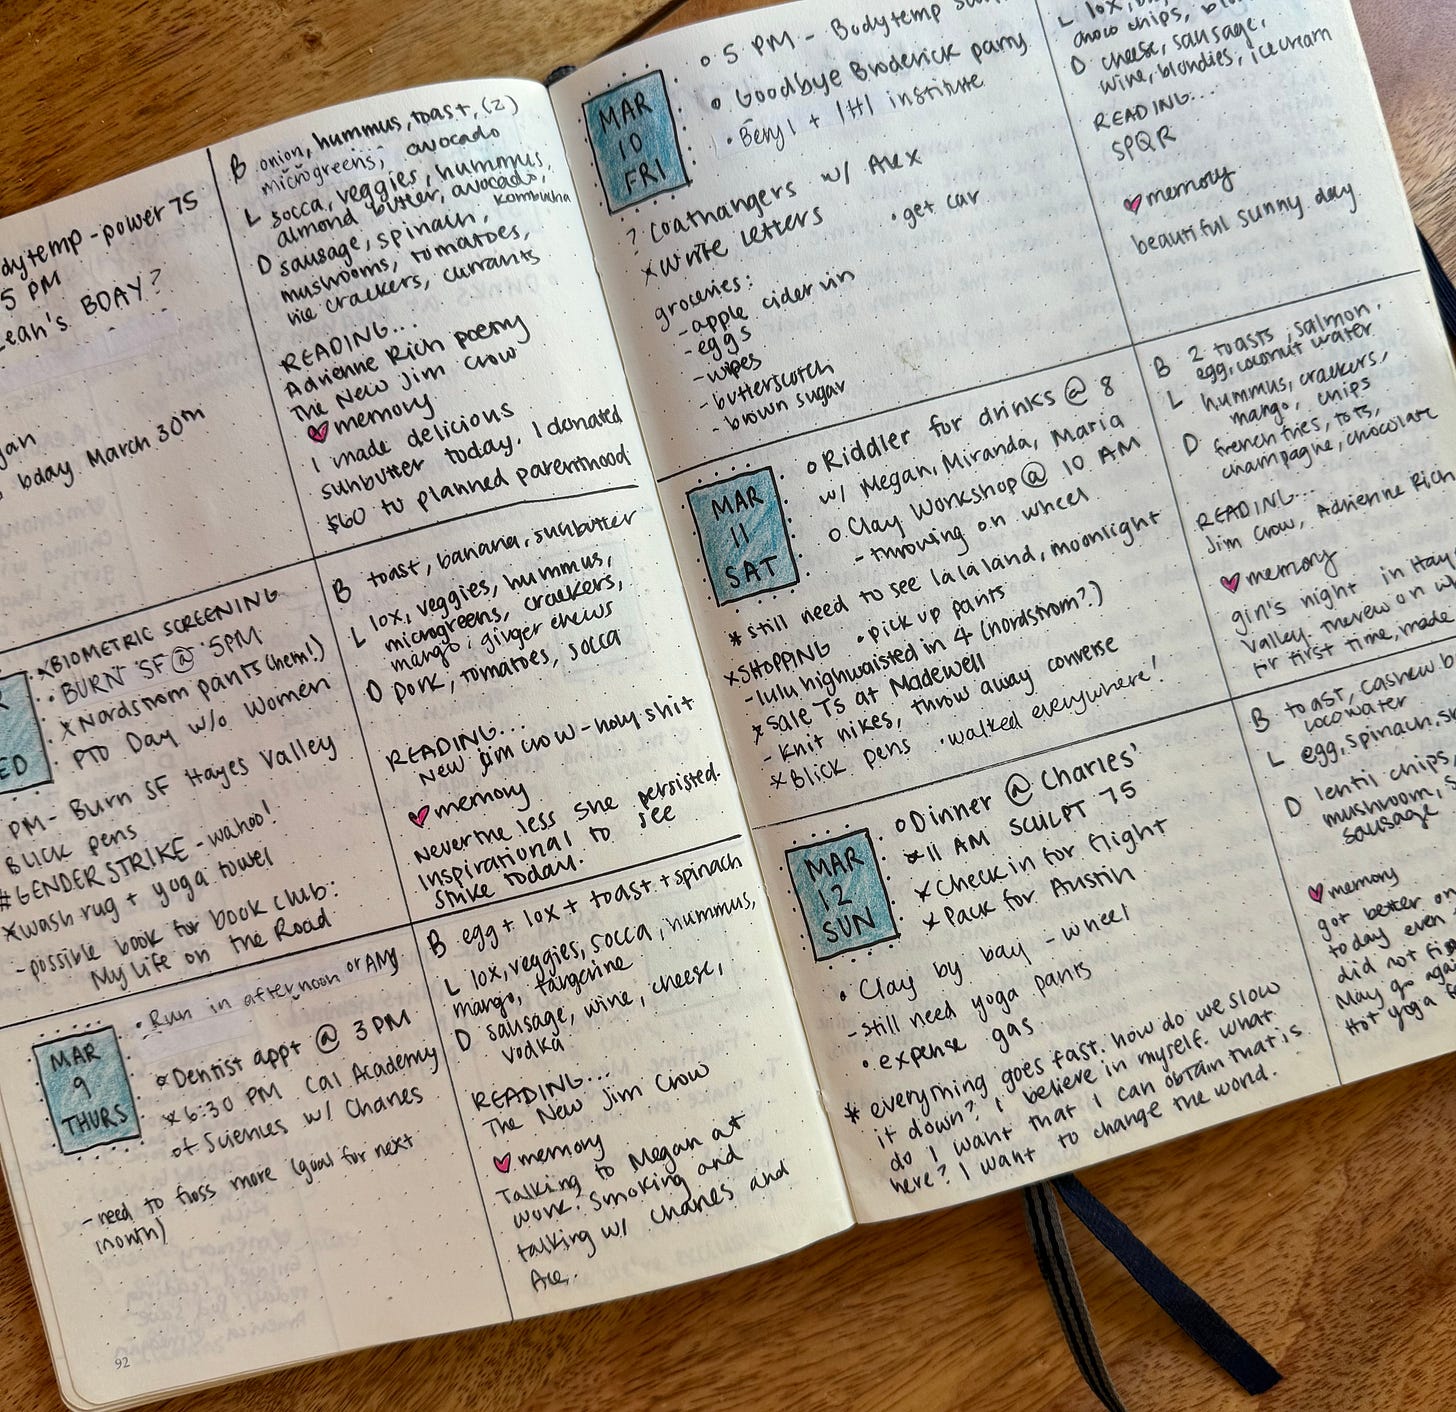 dytemp - power 75
5 PM
Leah's BDAY?
gan
bday March 30th
B onion, hummus, toast, (2)
microgreens, avocado
L socca, veggies, hummus,
almond butter, avocado,
kombucha
D sausage, spinach,
mushrooms, tomatoes,
rice crackers, currants
READING...
Adrienne Rich poetry
The New Jim Crow
memory
I made delicious
sunbutter today. I donated
$60 to planned parenthood
ED
xBIOMETRIC SCREENING
• BURN SF @ 5PM
x Nordstrom pants (hem!)
PTO Day w/o Women
PM - Burn SF Hayes Valley
BLICK pens
#GENDERSTRIKE - wahoo!
x wash rug + yoga towel
- possible book for book club:
My Life on the Road
B toast, banana, sunbutter
L lox, veggies, hummus,
microgreens, crackers,
mango, ginger chews
D pork, tomatoes, socca
READING...
New Jim Crow - holy shit
memory
Never the less she persisted.
Inspirational to see
strike today.
MAR
9
THURS
• Run in afternoon or AM
x Dentist appt @ 3PM
x 6:30 PM Cal Academy
of Sciences w/ Charles
- need to floss more (goal for next
month)
B egg + lox + toast + spinach
L lox, veggies, socca, hummus,
mango, tangerine
D sausage, wine, cheese,
vodka
READING...
The New Jim Crow
memory
Talking to Megan at
work. Smoking and
talking w/ Charles and
92
MAR
10
FRI
o 5 PM - Bodytemp
o Goodbye Broderick party
• Beryl + 1+1 institute
? coathangers w/ Alex
x Write letters
• get car
groceries:
- apple cider vin
- eggs
- wipes
- butterscotch
- brown sugar
L lox,
choco chips,
D cheese, sausage,
wine, blondies, icecream
READING...
SPQR
memory
beautiful sunny day
MAR
11
SAT
o Riddler for drinks @ 8
w/ Megan, Miranda, Maria
o Clay Workshop @ 10 AM
- throwing on wheel
* still need to see lalaland, moonlight
x SHOPPING • pick up pants
- lulu highwaisted in 4 (nordstrom?)
x sale TS at Madewell
- knit nikes, throw away converse
x Blick pens • walked everywhere!
B 2 toasts, salmon,
egg, coconut water
L hummus, crackers,
mango, chips
D french fries, tots,
champagne, chocolate
READING...
Jim Crow, Adrienne Rich
memory
girl's night in Hay
Valley. Threw on wh
for first time, made
MAR
12
SUN
o Dinner @ Charles'
x 11 AM SCULPT 75
x Check in for flight
x Pack for Austin
• Clay by bay - wheel
- still need yoga pants
• expense gas
* everything goes fast. how do we slow
it down? I believe in myself. what
do I want that I can obtain that is
here? I want to change the world.
B toast, cashew b
cocowater
L egg, spinach, s
D lentil chips,
mushroom, s
sausage
memory
got better on
today even
did not fi
May go aga
Hot yoga f